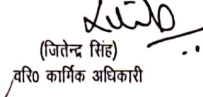 (जितेन्द्र सिंह)
वरि० कार्मिक अधिकारी